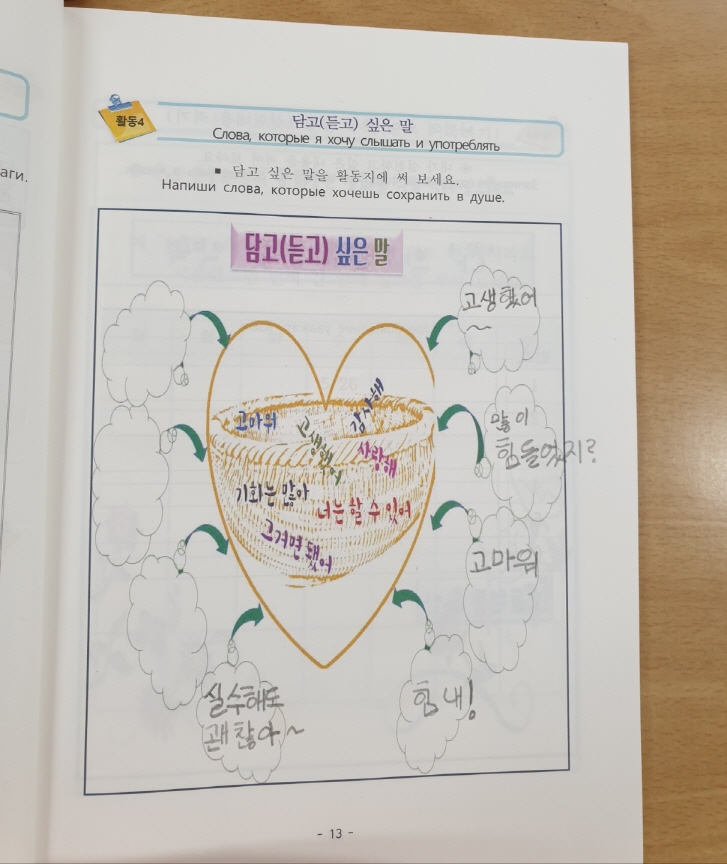 аги.
활동4
담고(듣고) 싶은 말
Слова, которые я хочу слышать и употреблять
▪ 담고 싶은 말을 활동지에 써 보세요.
Напиши слова, которые хочешь сохранить в душе.
담고(듣고) 싶은 말
고생했어
~
감사해
고마워
고생했어
사랑해
많이
힘들었지?
기회는 많아
너는 할 수 있어
그거면 됐어
고마워
실수해도
괜찮아~
힘내!
- 13 -